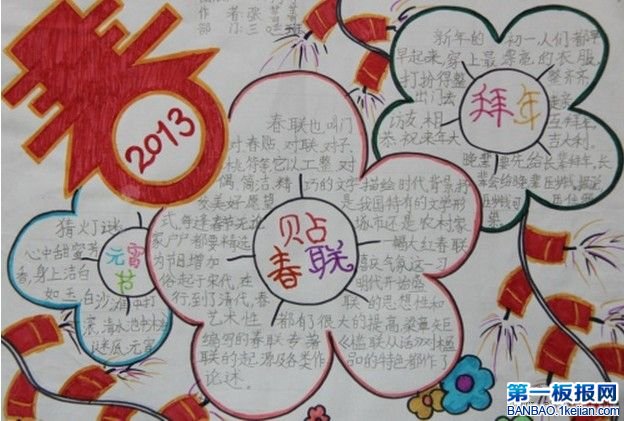 作 者:张
部 门:三 班
2013
春
新年的初一,人们都早
早起来,穿上最漂亮的衣服,
打扮得整整齐齐
出门去走亲
访友,相互拜年,
恭祝来年大吉大利。
晚辈要先给长辈拜年,长
辈会给晚辈压岁钱,据说
压岁钱可以压住邪
拜年
春联也叫门
对春贴 对联 对子
桃符等,它以工整 对
偶 简洁 精巧的文字描绘时代背景抒
发美好愿望是我国特有的文学形
式,每逢春节无论城市还是农村家
家户户都要精选一幅大红春联
为节日增加喜庆气象这一习
俗起于宋代,在明代开始盛
行到了清代,春联的思想性和
艺术性都有很大的提高,梁章矩
编写的春联专著《槛联丛话》对槛
联的起源及各类作品的特色都作了
论述.
贴
春联
猜灯谜
心中甜蜜芳
香,身上洁白
如玉,白沙滩中打
滚,清水池中沐浴
谜底 元宵
元宵
节
第一板报网
BANBAO.1kejian.com